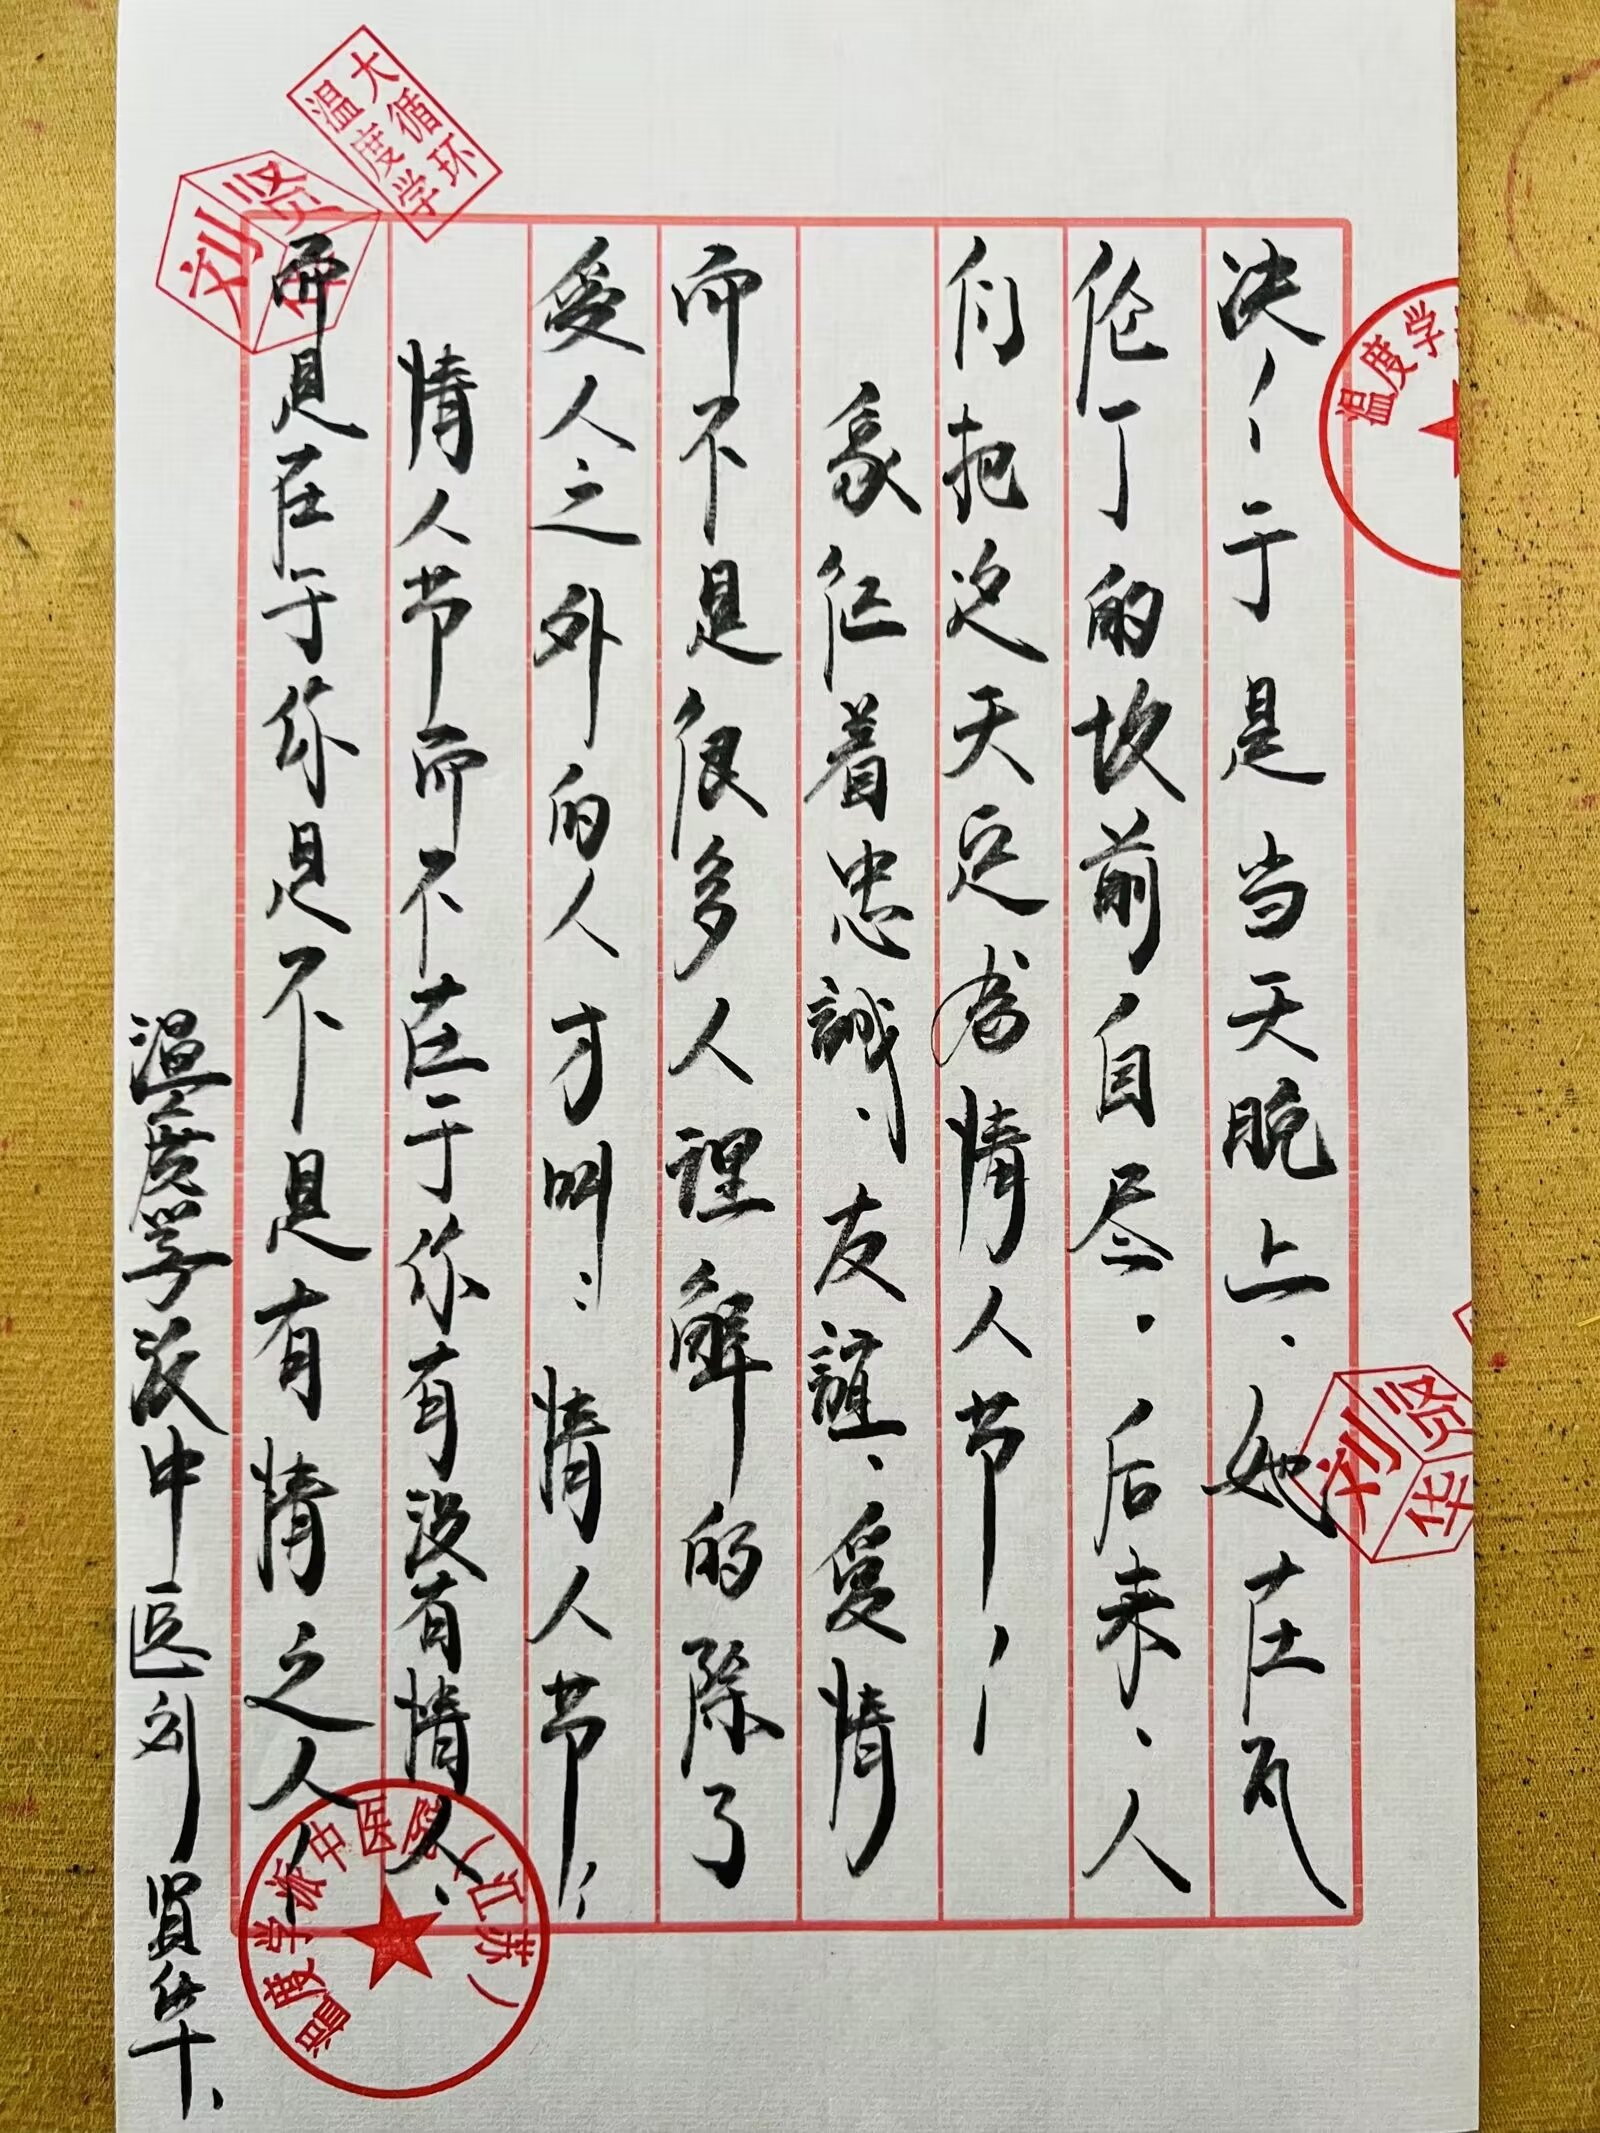 决！于是当天晚上、她在瓦
伦丁的坟前自尽、后来、人
们把这天定为情人节！
象征着忠誠、友誼、爱情
而不是很多人理解的除了
爱人之外的人才叫：情人节！
情人节而不在于你有没有情人、
而是在于你是不是有情之人！
温度学派中医刘贤华、
大循环
温度学
刘贤华
温度学
刘贤华
温度学派中医院（江苏）